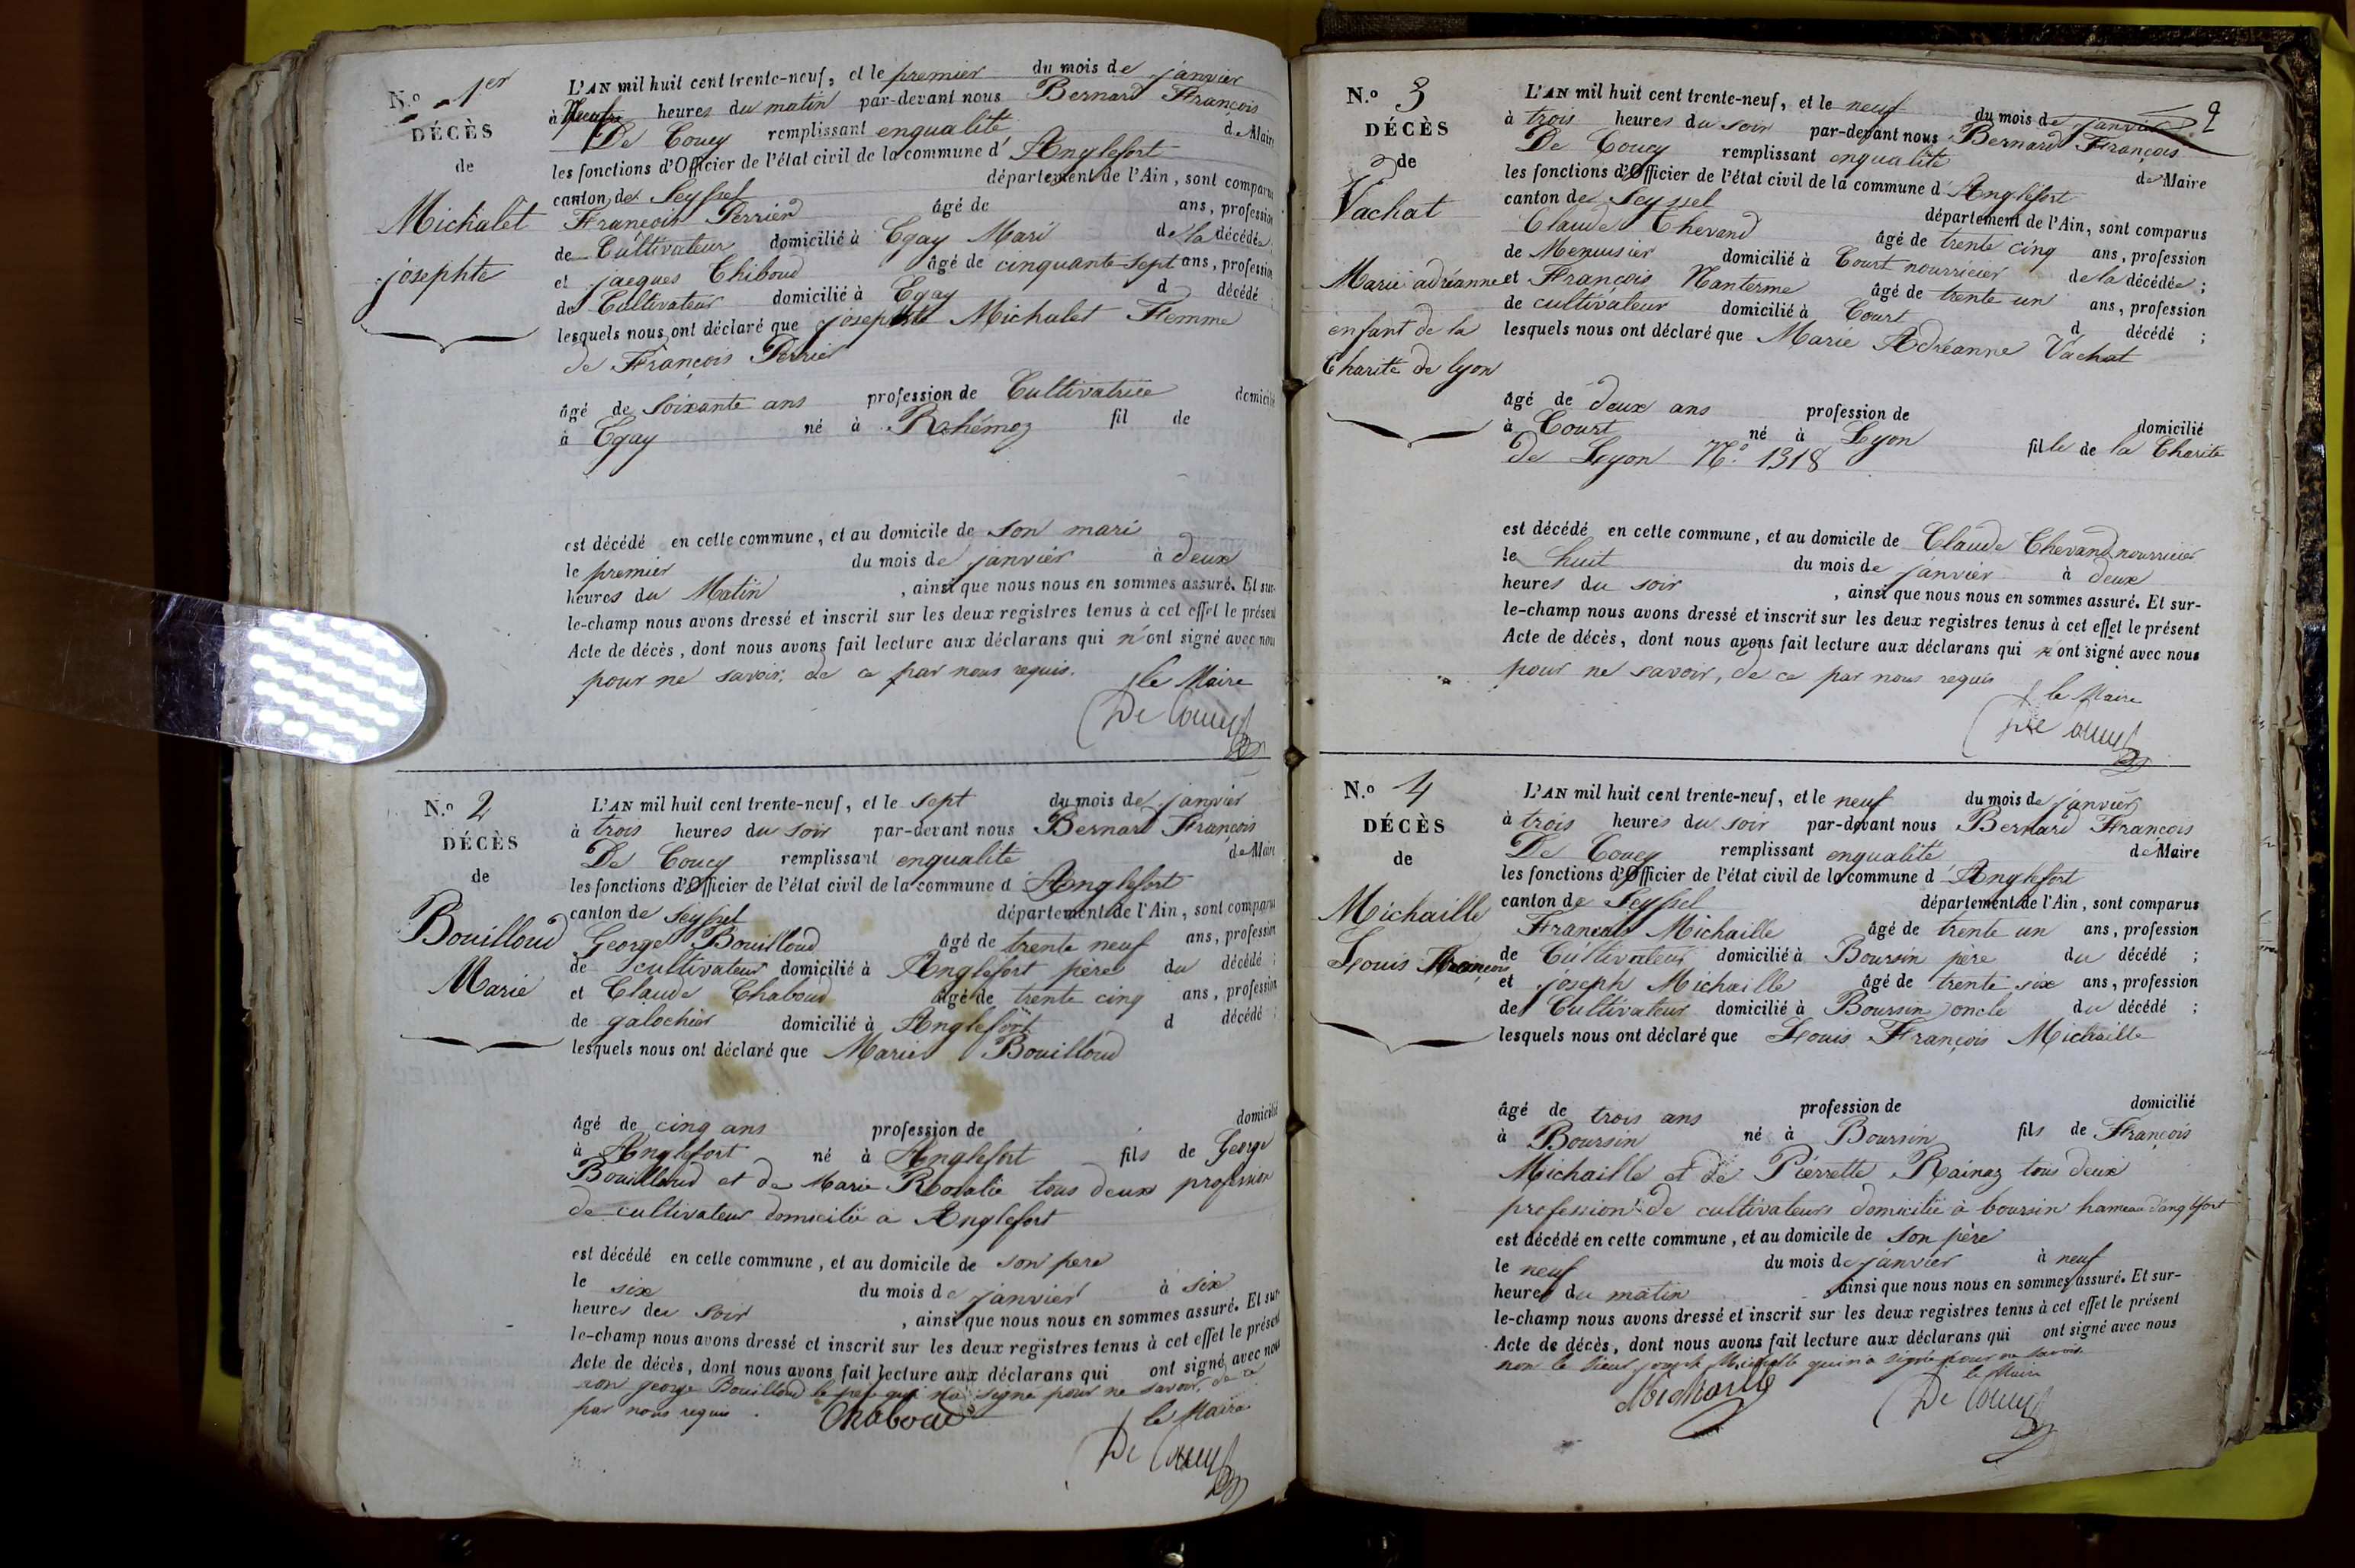 N.o 1er
DÉCÈS
de
Michalet
josephte
L'AN mil huit cent trente-neuf, et le premier du mois de janvier
à heures du matin par-devant nous Bernard François
De Coucy remplissant enqualité de Maire
les fonctions d'Officier de l'état civil de la commune d'Anglefort
canton de Seyssel département de l'Ain, sont comparus
François Perrier âgé de ans, profession
de Cultivateur domicilié à Egay Mari de la décédée
et jacques Thiboud âgé de cinquante sept ans, profession
de Cultivateur domicilié à Egay d décédé
lesquels nous ont déclaré que josephte Michalet Femme
de François Perrier
âgé de soixante ans profession de Cultivatrice domicilié
à Egay né à fil de
est décédé en cette commune, et au domicile de son mari
le premier du mois de janvier à deux
heures du Matin , ainsi que nous nous en sommes assuré. Et sur-
le-champ nous avons dressé et inscrit sur les deux registres tenus à cet effet le présent
Acte de décès, dont nous avons fait lecture aux déclarans qui n'ont signé avec nous
pour ne savoir, de ce par nous requis. le Maire
De Coucy
N.o 2
DÉCÈS
de
Bouilloud
Marie
L'AN mil huit cent trente-neuf, et le sept du mois de janvier
à trois heures du soir par-devant nous Bernard François
De Coucy remplissant enqualité de Maire
les fonctions d'Officier de l'état civil de la commune d'Anglefort
canton de Seyssel département de l'Ain, sont comparus
George Bouilloud âgé de trente neuf ans, profession
de cultivateur domicilié à Anglefort père du décédé ;
et Claude Chaboud âgé de trente cinq ans, profession
de galochier domicilié à Anglefort d décédé ;
lesquels nous ont déclaré que Marie Bouilloud
âgé de cinq ans profession de domicilié
à Anglefort né à Anglefort fils de George
Bouilloud et de Marie Rosalie tous deux profession
de cultivateur domicilié à Anglefort
est décédé en cette commune, et au domicile de son père
le six du mois de janvier à six
heures du soir , ainsi que nous nous en sommes assuré. Et sur-
le-champ nous avons dressé et inscrit sur les deux registres tenus à cet effet le présent
Acte de décès, dont nous avons fait lecture aux déclarans qui ont signé avec nous
non george Bouilloud le père qui n'a signé pour ne savoir, de ce
par nous requis. Chaboud le Maire
De Coucy
2
N.o 3
DÉCÈS
de
Vachat
Marie adréanne
enfant de la
Charité de lyon
L'AN mil huit cent trente-neuf, et le neuf du mois de janvier
à trois heures du soir par-devant nous Bernard François
De Coucy remplissant enqualité de Maire
les fonctions d'Officier de l'état civil de la commune d'Anglefort
canton de Seyssel département de l'Ain, sont comparus
Claude Chevand âgé de trente cinq ans, profession
de Menuisier domicilié à Court nourricier de la décédée ;
et François Nanterme âgé de trente un ans, profession
de cultivateur domicilié à Court d décédé ;
lesquels nous ont déclaré que Marie Adréanne Vachat
âgé de deux ans profession de domicilié
à Court né à Lyon fille de la Charité
de Lyon N.o 1318
est décédé en cette commune, et au domicile de Claude Chevand nourricier
le huit du mois de janvier à deux
heures du soir , ainsi que nous nous en sommes assuré. Et sur-
le-champ nous avons dressé et inscrit sur les deux registres tenus à cet effet le présent
Acte de décès, dont nous avons fait lecture aux déclarans qui n'ont signé avec nous
pour ne savoir, de ce par nous requis le Maire
De Coucy
N.o 4
DÉCÈS
de
Michaille
Louis François
L'AN mil huit cent trente-neuf, et le neuf du mois de janvier
à trois heures du soir par-devant nous Bernard François
De Coucy remplissant enqualité de Maire
les fonctions d'Officier de l'état civil de la commune d'Anglefort
canton de Seyssel département de l'Ain, sont comparus
François Michaille âgé de trente un ans, profession
de Cultivateur domicilié à Boursin père du décédé ;
et joseph Michaille âgé de trente six ans, profession
de Cultivateur domicilié à Boursin oncle du décédé ;
lesquels nous ont déclaré que Louis François Michaille
âgé de trois ans profession de domicilié
à Boursin né à Boursin fils de François
Michaille et de Pierrette Rainaz tous deux
profession de cultivateurs domicilié à boursin hameau d'anglefort
est décédé en cette commune, et au domicile de son père
le neuf du mois de janvier à neuf
heures du matin ainsi que nous nous en sommes assuré. Et sur-
le-champ nous avons dressé et inscrit sur les deux registres tenus à cet effet le présent
Acte de décès, dont nous avons fait lecture aux déclarans qui ont signé avec nous
non le sieur joseph Michaille qui n'a signé pour ne savoir
le Maire
Michaille De Coucy